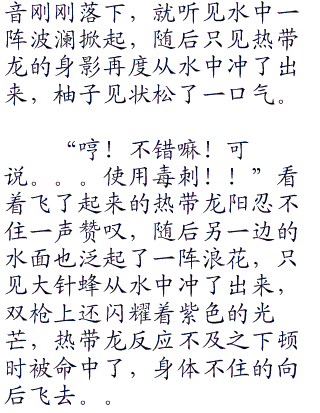 音刚刚落下，就听见水中一
阵波澜掀起，随后只见热带
龙的身影再度从水中冲了出
来，柚子见状松了一口气。
“哼！不错嘛！可
说。。。使用毒刺！！”看
着飞了起来的热带龙阳忍不
住一声赞叹，随后另一边的
水面也泛起了一阵浪花，只
见大针蜂从水中冲了出来，
双枪上还闪耀着紫色的光
芒，热带龙反应不及之下顿
时被命中了，身体不住的向
后飞去。。